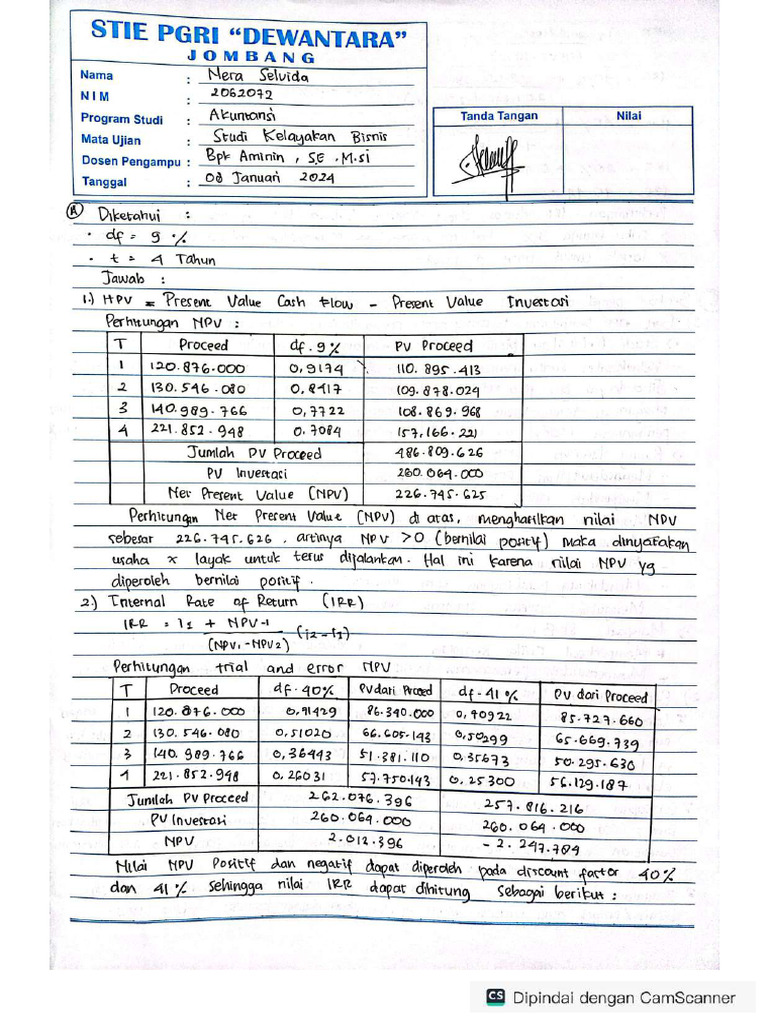 STIE PGRI “DEWANTARA”
JOMBANG
Nama : Mera Selvida
NIM : 2062072
Program Studi : Akuntansi
Mata Ujian : Studi Kelayakan Bisnis
Dosen Pengampu : Bpk Aminin, SE, M.si
Tanggal : 08 Januari 2024
Tanda Tangan Nilai
A Diketahui :
• df = 9 %
• t = 4 Tahun
Jawab :
1.) HPV = Present Value Cash flow - Present Value Investasi
Perhitungan NPV :
T Proceed df. 9% PV Proceed
1 120.876.000 0,9174 110.895.413
2 130.546.080 0,8417 109.878.024
3 140.989.766 0,7722 108.869.968
4 221.852.948 0.7084 157.166.221
Jumlah PV Proceed 486.809.626
PV Investasi 260.064.000
Net Present Value (NPV) 226.745.625
Perhitungan Net Present Value (NPV) di atas, menghasilkan nilai NPV
sebesar 226.745.626, artinya NPV > 0 (bernilai positif) maka dinyatakan
usaha x layak untuk terus dijalankan. Hal ini karena nilai NPV yg
diperoleh bernilai positif.
2.) Internal Rate of Return (IRR)
IRR = i1 + NPV-1 (i2-i1)
(NPV1-NPV2)
Perhitungan trial and error NPV
T Proceed df-40% PV dari Proceed df-41% PV dari Proceed
1 120.876.000 0,91429 86.340.000 0,70922 85.727.660
2 130.546.080 0,51020 66.605.143 0,50299 65.669.739
3 140.989.766 0,36443 51.381.110 0,35673 50.295.630
4 221.852.948 0,26031 57.750.143 0,25300 56.129.187
Jumlah PV Proceed 262.076.396 257.816.216
PV Investasi 260.064.000 260.064.000
NPV 2.012.396 - 2.247.784
Nilai NPV Positif dan negatif dapat diperoleh pada discount factor 40%
dan 41% sehingga nilai IRR dapat dihitung sebagai berikut :
CS Dipindai dengan CamScanner